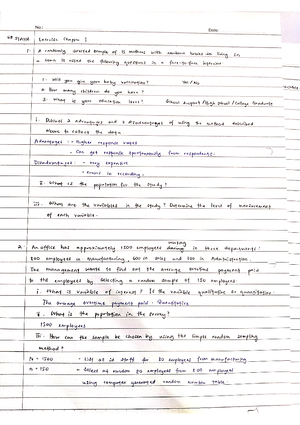 No:
Date:
Exercise Chapter 1
1. A randomly selected sample of 15 mothers with newborn babies living in
a town is asked the following questions in a face-to-face interview
1. Will you give your baby vaccination? Yes/No
2. How many children do you have?
3. What is your education level? School Support/High School/College Graduate
i. Discuss 2 advantages and 2 disadvantages of using the method described
above to collect the data
Advantages : - Higher response rates
- Can get response spontaneously from respondents.
Disadvantages : - Very expensive
- Errors in recording.
ii. What is the population for the study?
iii. What are the variables in the study? Determine the level of measurement
of each variable.
2. An office has approximately 1500 employees working in three departments :
800 employees in Manufacturing, 600 in Sales and 100 in Administration.
The management wants to find out the average overtime payment paid
to the employees by selecting a random sample of 150 employees
i. What is variable of interest? Is the variable qualitative or quantitative
The average overtime payment paid - Quantitative
ii. What is the population in the survey?
1500 employees
iii. How can the sample be chosen by using the simple random sampling
method?
N = 1500 - List of staff for 80 employees from manufacturing
n = 150 - Select at random 80 employees from 800 employees
using computer generated random number table